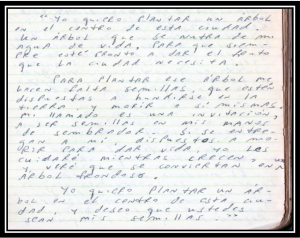 "Yo quiero plantar un árbol
en el centro de esta ciudad.
Un árbol que se nutra de mi
agua de vida, para que siem-
pre esté pronto a dar el fruto
que la ciudad necesita.
Para plantar ese árbol me
hacen falta semillas, que estén
dispuestas a hundirse en la
tierra y morir a sí mismas.
Mi llamado es una invitación,
a ser semillas en mis manos
de sembrador. Si se entre-
gan a mí, dispuestos a mo-
rir para dar vida, yo los
cuidaré mientras crecen
y haré que se conviertan en un
árbol frondoso.
Yo quiero plantar un ár-
bol en el centro de esta ciu-
dad y deseo que ustedes
sean mis semillas."